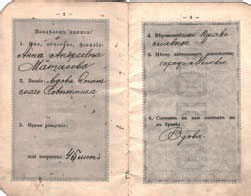 — 2 —
Владѣлецъ книжки:
1. Имя, отчество, фамилія
Анна Андреевна
2. Званіе: Вдова
Совѣтника
3. Время рожденія:
или возрастъ: 45 лѣтъ
— 3 —
4. Вѣроисповѣданіе: Право
славное
5. Мѣсто постояннаго жительства:
городъ Москва
6. Состоитъ ли или состоялъ ли
въ бракѣ:
Вдова